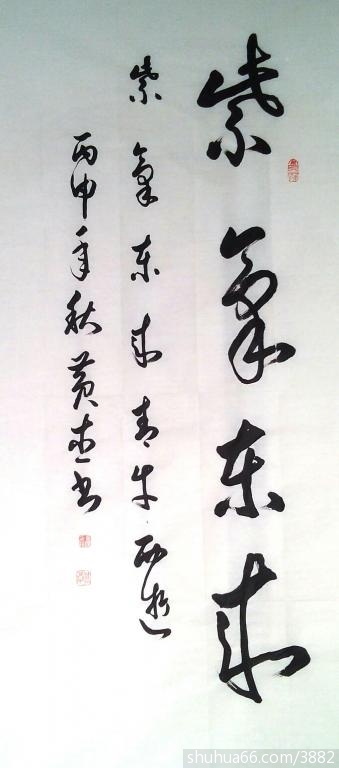 紫氣东来
紫氣东来青牛西逝
丙申年秋黄书
shuhua66.com/3882